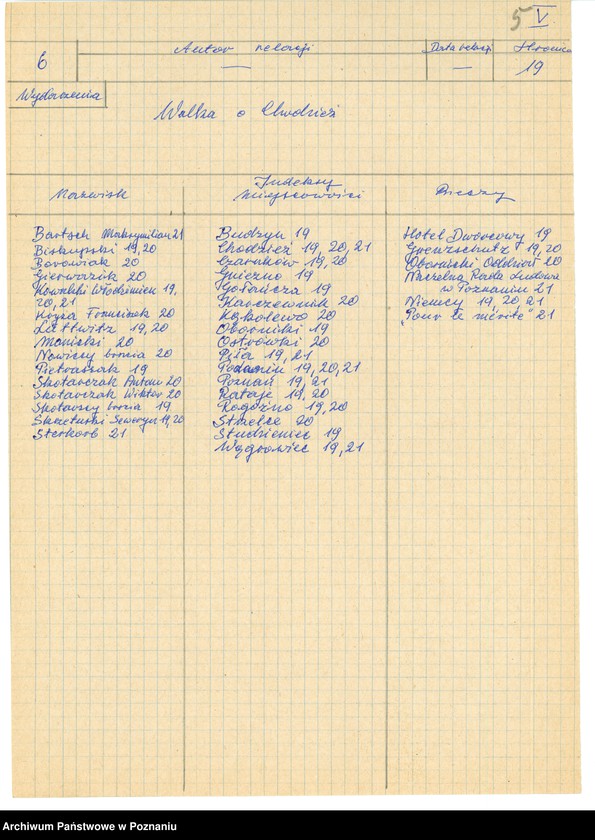 5 V
6
Autor relacji
—
Data relacji
—
Stronica
19
Wydarzenia
Walka o Chodzież
Indeksy
Nazwisk
miejscowości
Rzeczy
Bartsch Maksymilian 21
Biskupski 19, 20
Borowiak 20
Gierwazik 20
Kowalski Włodzimierz 19,
20, 21
Kryza Franciszek 20
Lüttwitz 19, 20
Monicki 20
Nowiccy bracia 20
Pietrassak 19
Skotarczak Antoni 20
Skotarczak Wiktor 20
Skotarscy bracia 19
Skrzetuski Seweryn 19, 20
Sterkorb 21
Budzyn 19
Chodzież 19, 20, 21
Czarnków 19, 20
Gniezno 19
Gołańcza 19
Karczewnik 20
Kąkolewo 20
Oborniki 19
Ostrówki 20
Piła 19, 21
Podanin 19, 20, 21
Poznań 19, 21
Rataje 19, 20
Rogoźno 19, 20
Strzelce 20
Studzieniec 19
Wągrowiec 19, 21
Hotel Dworcowy 19
Grenzschutz 19, 20
Obornicki Oddział 20
Naczelna Rada Ludowa
w Poznaniu 21
Niemcy 19, 20, 21
„Pour le mérite" 21
Archiwum Państwowe w Poznaniu